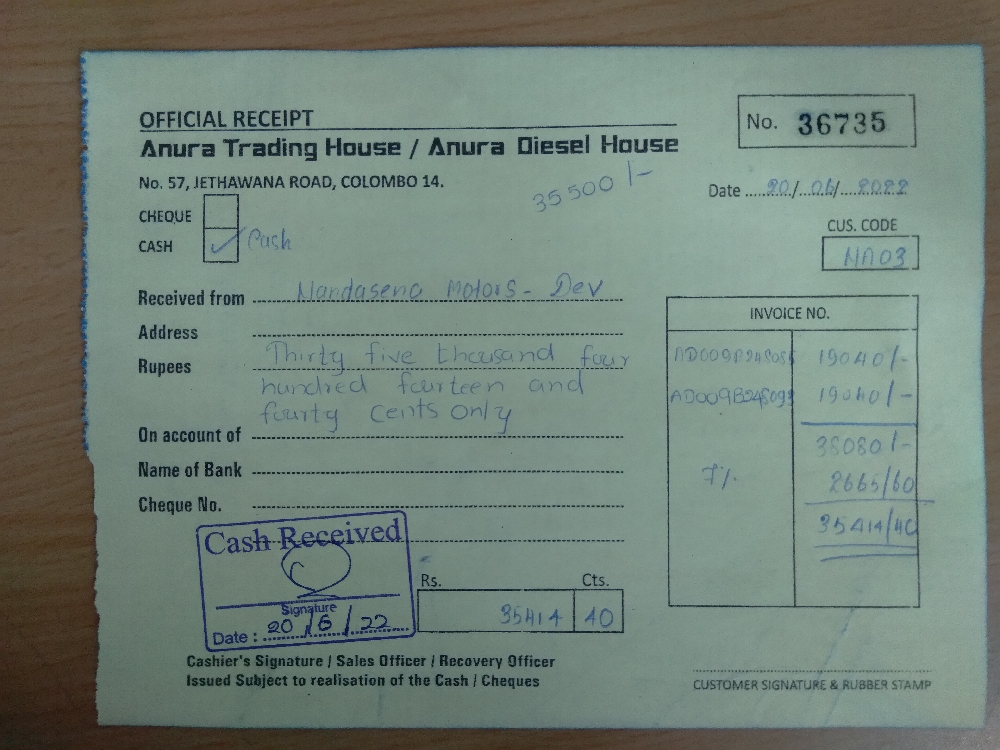 OFFICIAL RECEIPT
No. 36735
Anura Trading House / Anura Diesel House
No. 57, JETHAWANA ROAD, COLOMBO 14.
35500/-
Date 20/06/2022
CHEQUE
CASH ✓ Cash
CUS. CODE
NA03
Received from Nandasena Motors - Dev
Address
Rupees Thirty five thousand four
hundred fourteen and
fourty cents only
On account of
Name of Bank
Cheque No.
INVOICE NO.
19040/-
19040/-
38080/-
7% 2665/60
35414/40
Cash Received
Signature
Date : 20/6/22
Rs. Cts.
35414 40
Cashier's Signature / Sales Officer / Recovery Officer
Issued Subject to realisation of the Cash / Cheques
CUSTOMER SIGNATURE & RUBBER STAMP